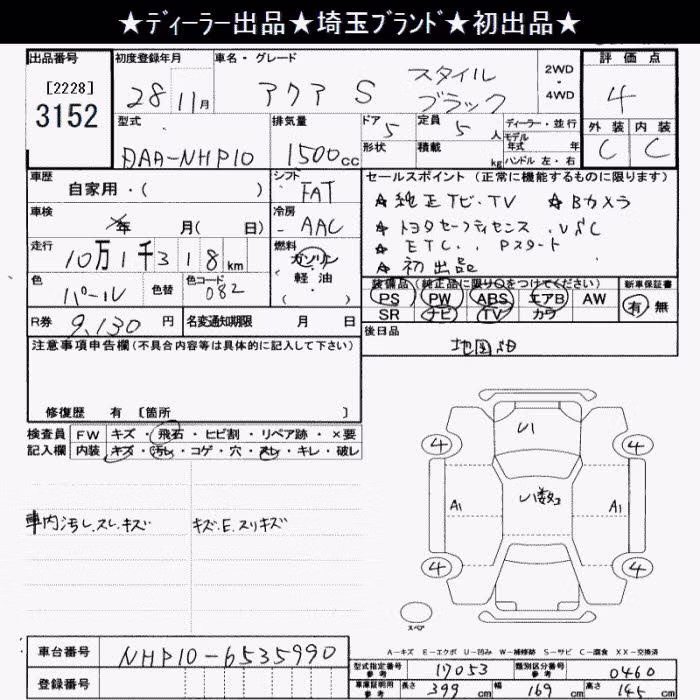 ★ディーラー出品★埼玉ブランド★初出品★
出品番号 初度登録年月 車名・グレード 2WD・4WD 評価点
[2228] 3152
28 11月 アクア S スタイル ブラック 4
型式 排気量 ドア 5 定員 5人 ディーラー・並行 外装 内装
DAA-NHP10 1500cc 形状 積載 kg モデル年式 年 ハンドル 左・右 C C
車歴 シフト セールスポイント (正常に機能するものに限ります)
自家用・( ) FAT ☆純正ナビ・TV ☆Bカメラ
車検 年 月( 日) 冷房 AAC ☆トヨタセーフティセンス.VSC
走行 10万1千318km 燃料 ガソリン・軽油・ ☆ETC.. Pスタート
☆初出品
色 パール 色替 色コード 082 装備品 (純正品に限り○をつけてください) 新車保証書
PS PW ABS エアB AW 有 無
SR ナビ TV カワ
R券 9,130円 名変通知期限 月 日 後日品
注意事項申告欄(不具合内容等は具体的に記入して下さい)
修復歴 有 [箇所 ]
検査員 FW キズ・飛石・ヒビ割・リペア跡・×要
記入欄 内装 キズ・汚れ・コゲ・穴・スレ・キレ・破レ
車内汚レ.スレ.キズ キズ.E.スリキズ
U1
4 4
A1 U1数コ A1
4 4
スペア
A-キズ E-エクボ U-凹み W-補修跡 S-サビ C-腐食 XX-交換済
車台番号 NHP10-6535990
型式指定番号 参考 17053 類別区分番号 参考 0460
登録番号
車庫証明用 参考 長さ 399cm 幅 169cm 高さ 145cm